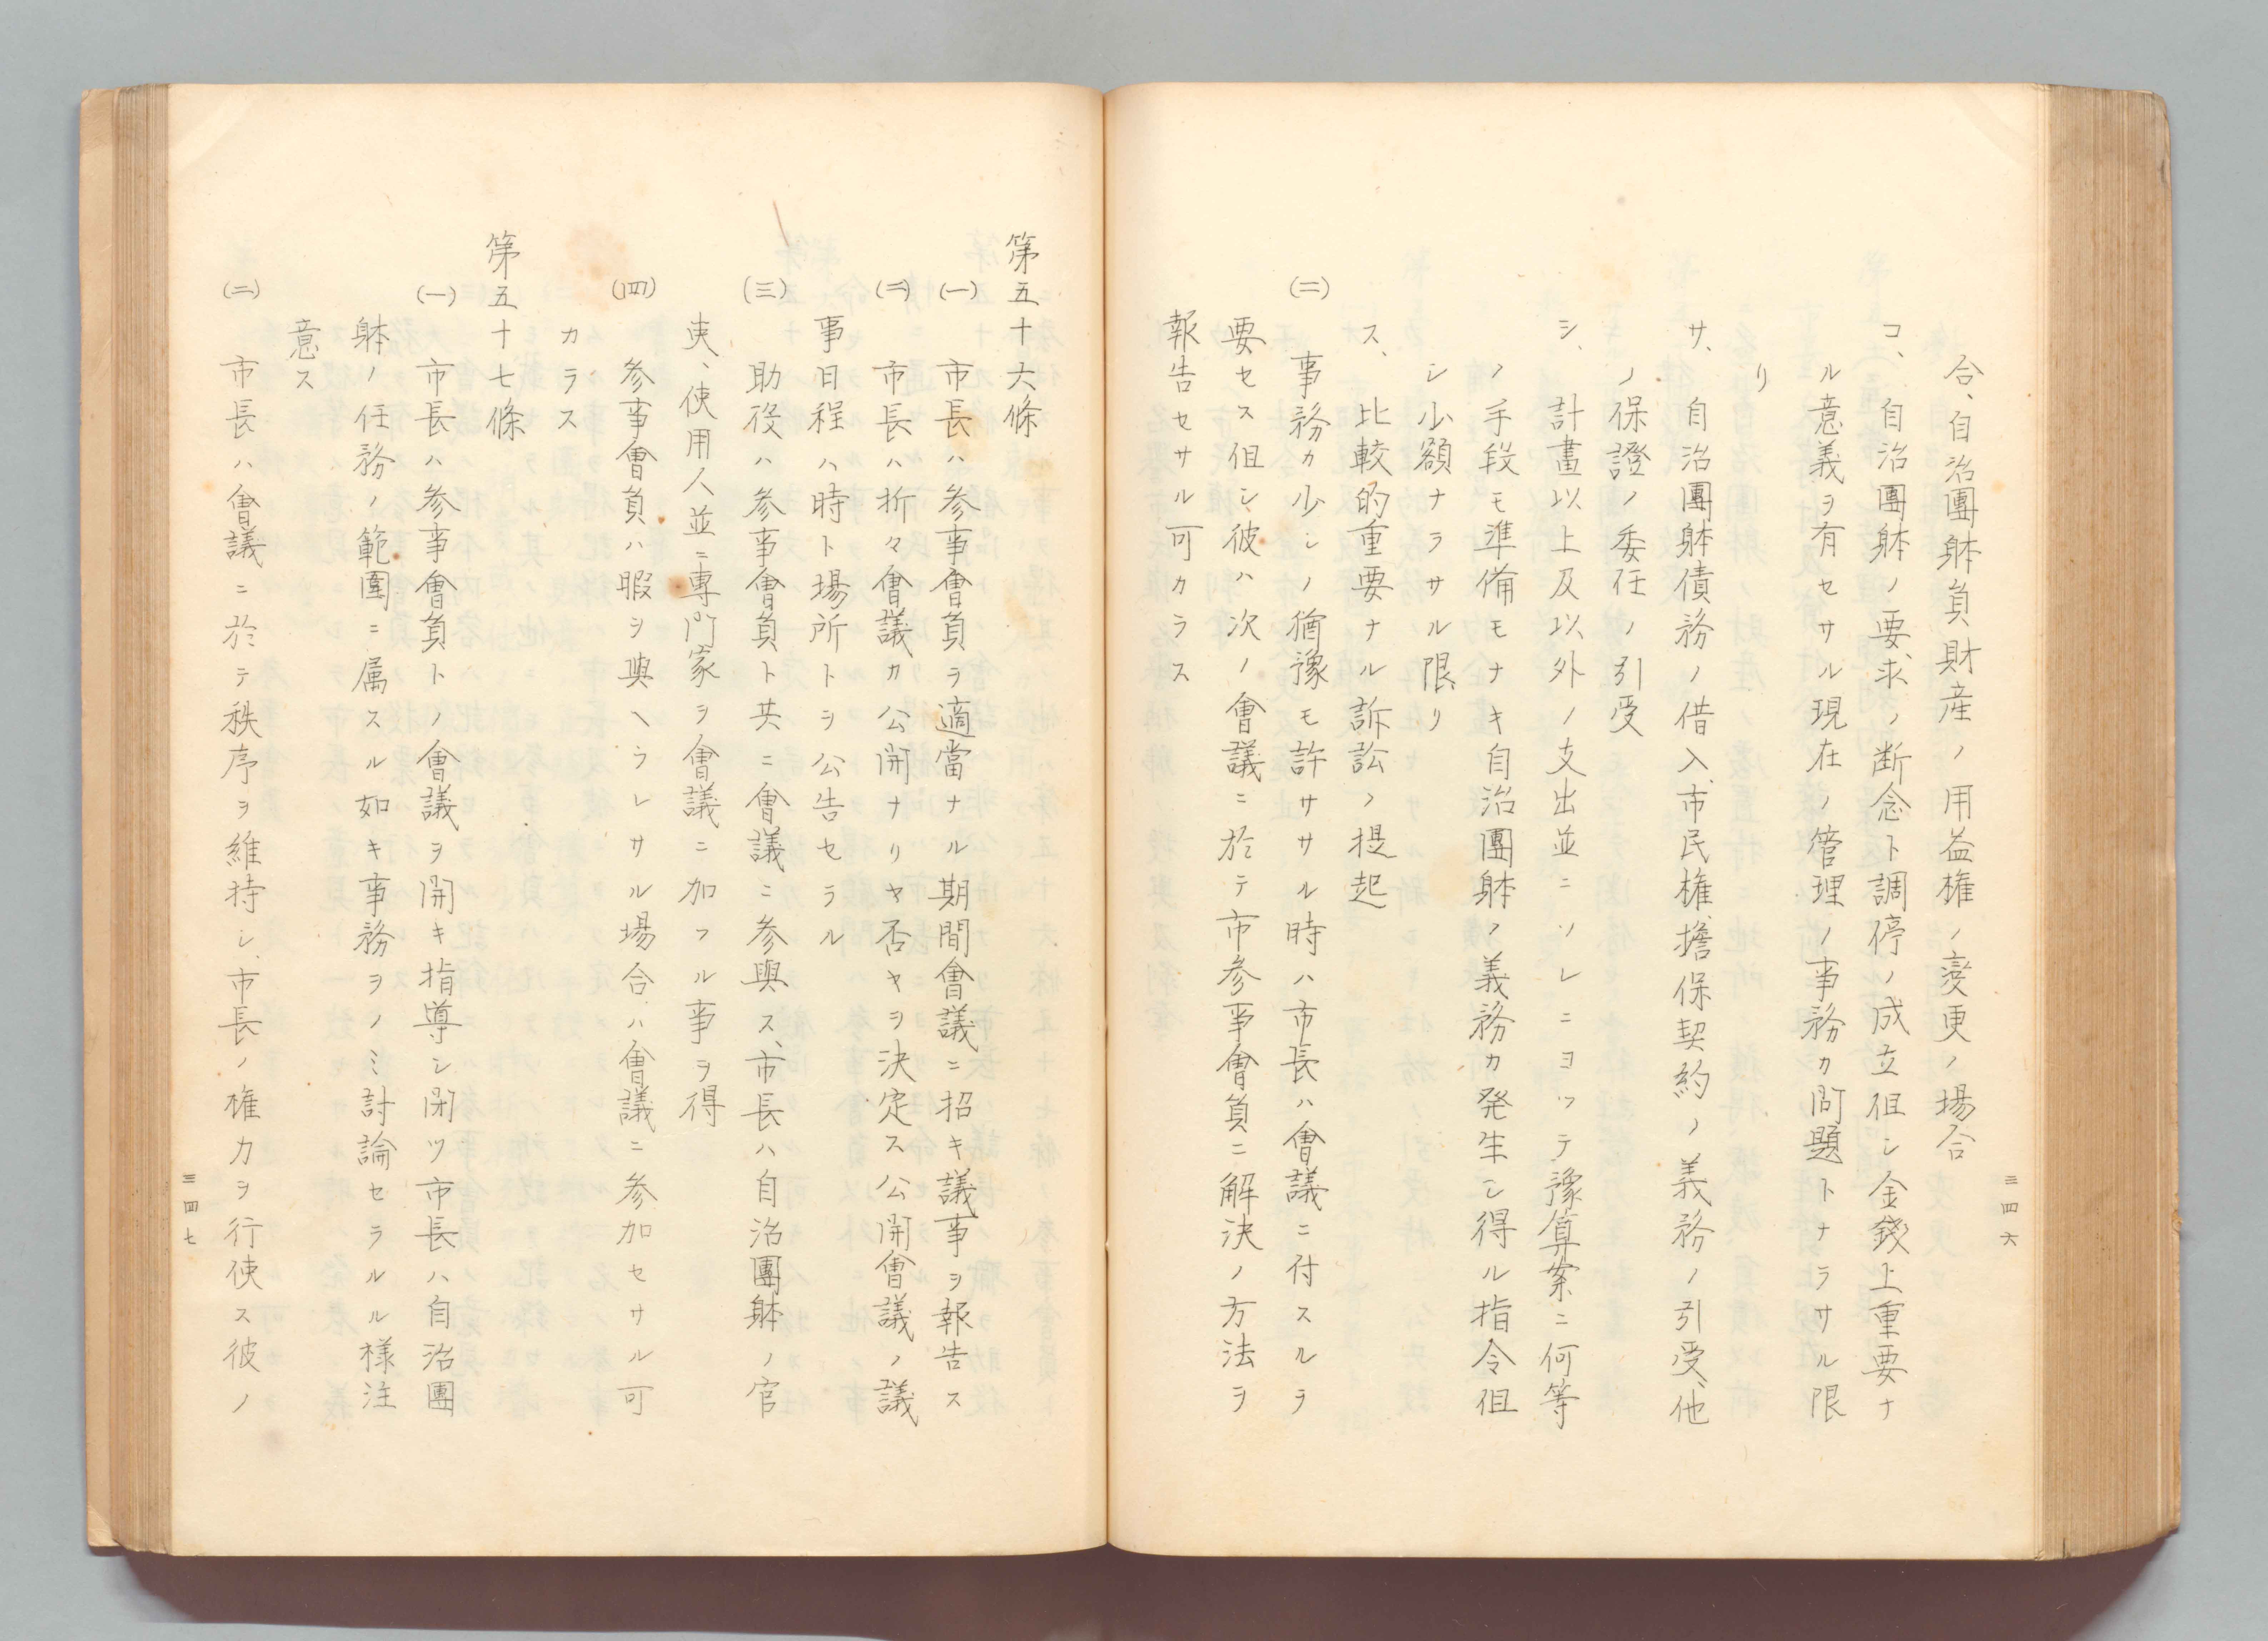 合、自治團躰負財産ノ用益権ノ変更ノ場合
コ、自治團躰ノ要求ノ断念ト調停ノ成立但シ金錢上重要ナ
ル意義ヲ有セサル現在ノ管理ノ事務カ問題トナラサル限
リ
サ、自治團躰債務ノ借入、市民権擔保契約ノ義務ノ引受、他
ノ保證ノ委任ノ引受
シ、計畫以上及以外ノ支出並ニソレニヨツテ豫算案ニ何等
ノ手段モ準備モナキ自治團躰ノ義務カ発生シ得ル指令但
シ少額ナラサル限リ
ス、比較的重要ナル訴訟ノ提起
(二)事務カ少シノ猶豫モ許ササル時ハ市長ハ會議ニ付スルヲ
要セス但シ彼ハ次ノ會議ニ於テ市参事會員ニ解決ノ方法ヲ
報告セサル可カラス
三四六
第五十六條
(一)市長ハ参事會員ヲ適當ナル期間會議ニ招キ議事ヲ報告ス
(二)市長ハ折々會議カ公開ナリヤ否ヤヲ決定ス公開會議ノ議
事日程ハ時ト場所トヲ公告セラル
(三)助役ハ参事會員ト共ニ會議ニ参與ス、市長ハ自治團躰ノ官
吏、使用人並ニ專門家ヲ會議ニ加フル事ヲ得
(四)参事會員ハ暇ヲ與ヘラレサル場合ハ會議ニ参加セサル可
カラス
第五十七條
(一)市長ハ参事會員トノ會議ヲ開キ指導シ閉ツ市長ハ自治團
躰ノ任務ノ範圍ニ属スル如キ事務ヲノミ討論セラルル様注
意ス
(二)市長ハ會議ニ於テ秩序ヲ維持シ、市長ノ権力ヲ行使ス彼ノ
三四七